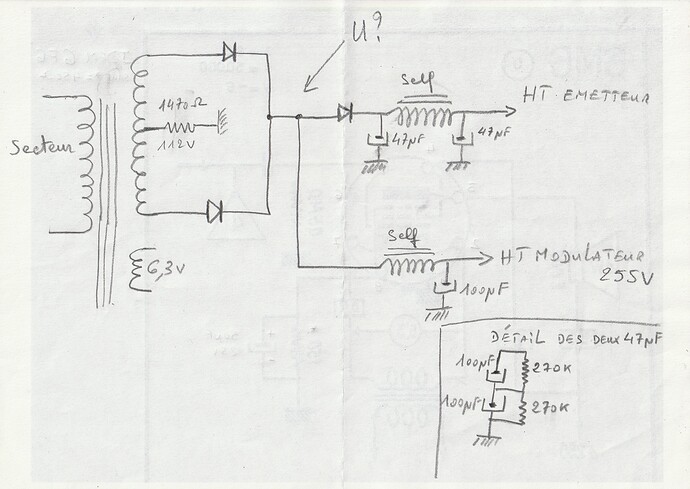 U?
Self
HT EMETTEUR
1470Ω
112V
47µF
47µF
Secteur
6,3V
Self
HT MODULATEUR
255V
100µF
DÉTAIL DES DEUX 47µF
100µF
270K
100µF
270K